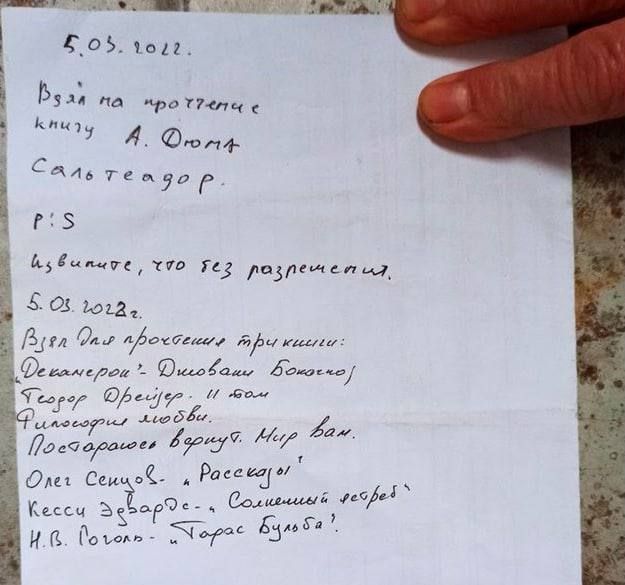 5.03.2022.
Взял на прочтение
книгу А. Дюма
Сальтеадор.
P:S
Извините, что без разрешения.
5.03.2022г.
Взял для прочтения три книги:
„Декамерон" - Джовани Бокаччо;
Теодор Дрейзер. II том
Философия любви.
Постараюсь вернут. Мир вам.
Олег Сенцов - „Рассказы"
Кесси Эдвардс - „Солнечный ястреб"
Н.В. Гоголь - „Тарас Бульба".